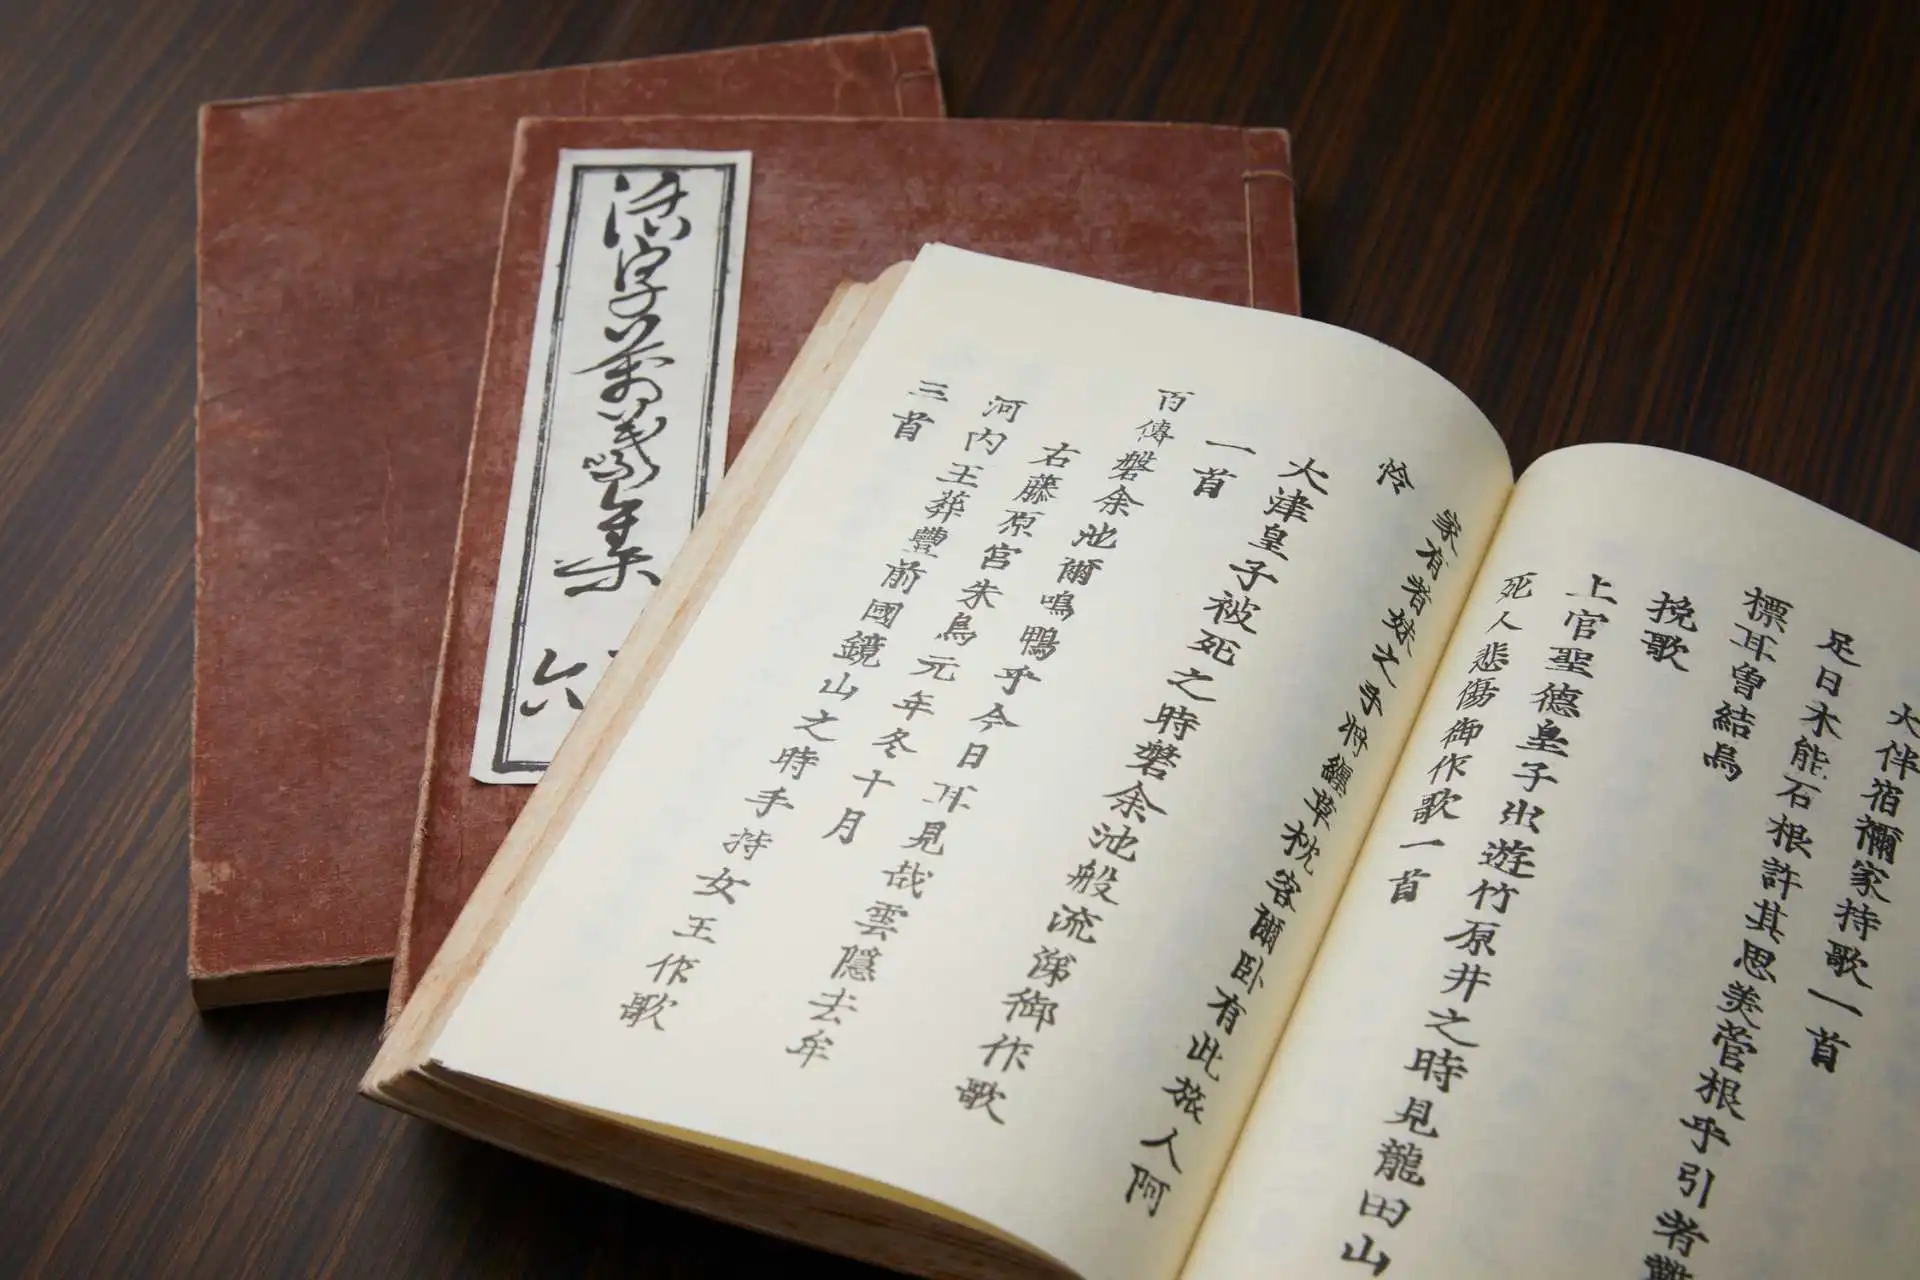 活字萬葉集
六
大伴宿禰家持歌一首
足日木能石根許其思美菅根乎引者難
標耳曽結焉
挽歌
上宮聖德皇子出遊竹原井之時見龍田山
死人悲傷御作歌一首
家有者妹之手将纏草枕客爾臥有此旅人阿
怜
大津皇子被死之時磐余池般流涕御作歌
一首
百傳磐余池爾鳴鴨乎今日耳見哉雲隱去牟
右藤原宮朱鳥元年冬十月
河内王葬豊前國鏡山之時手持女王作歌
三首